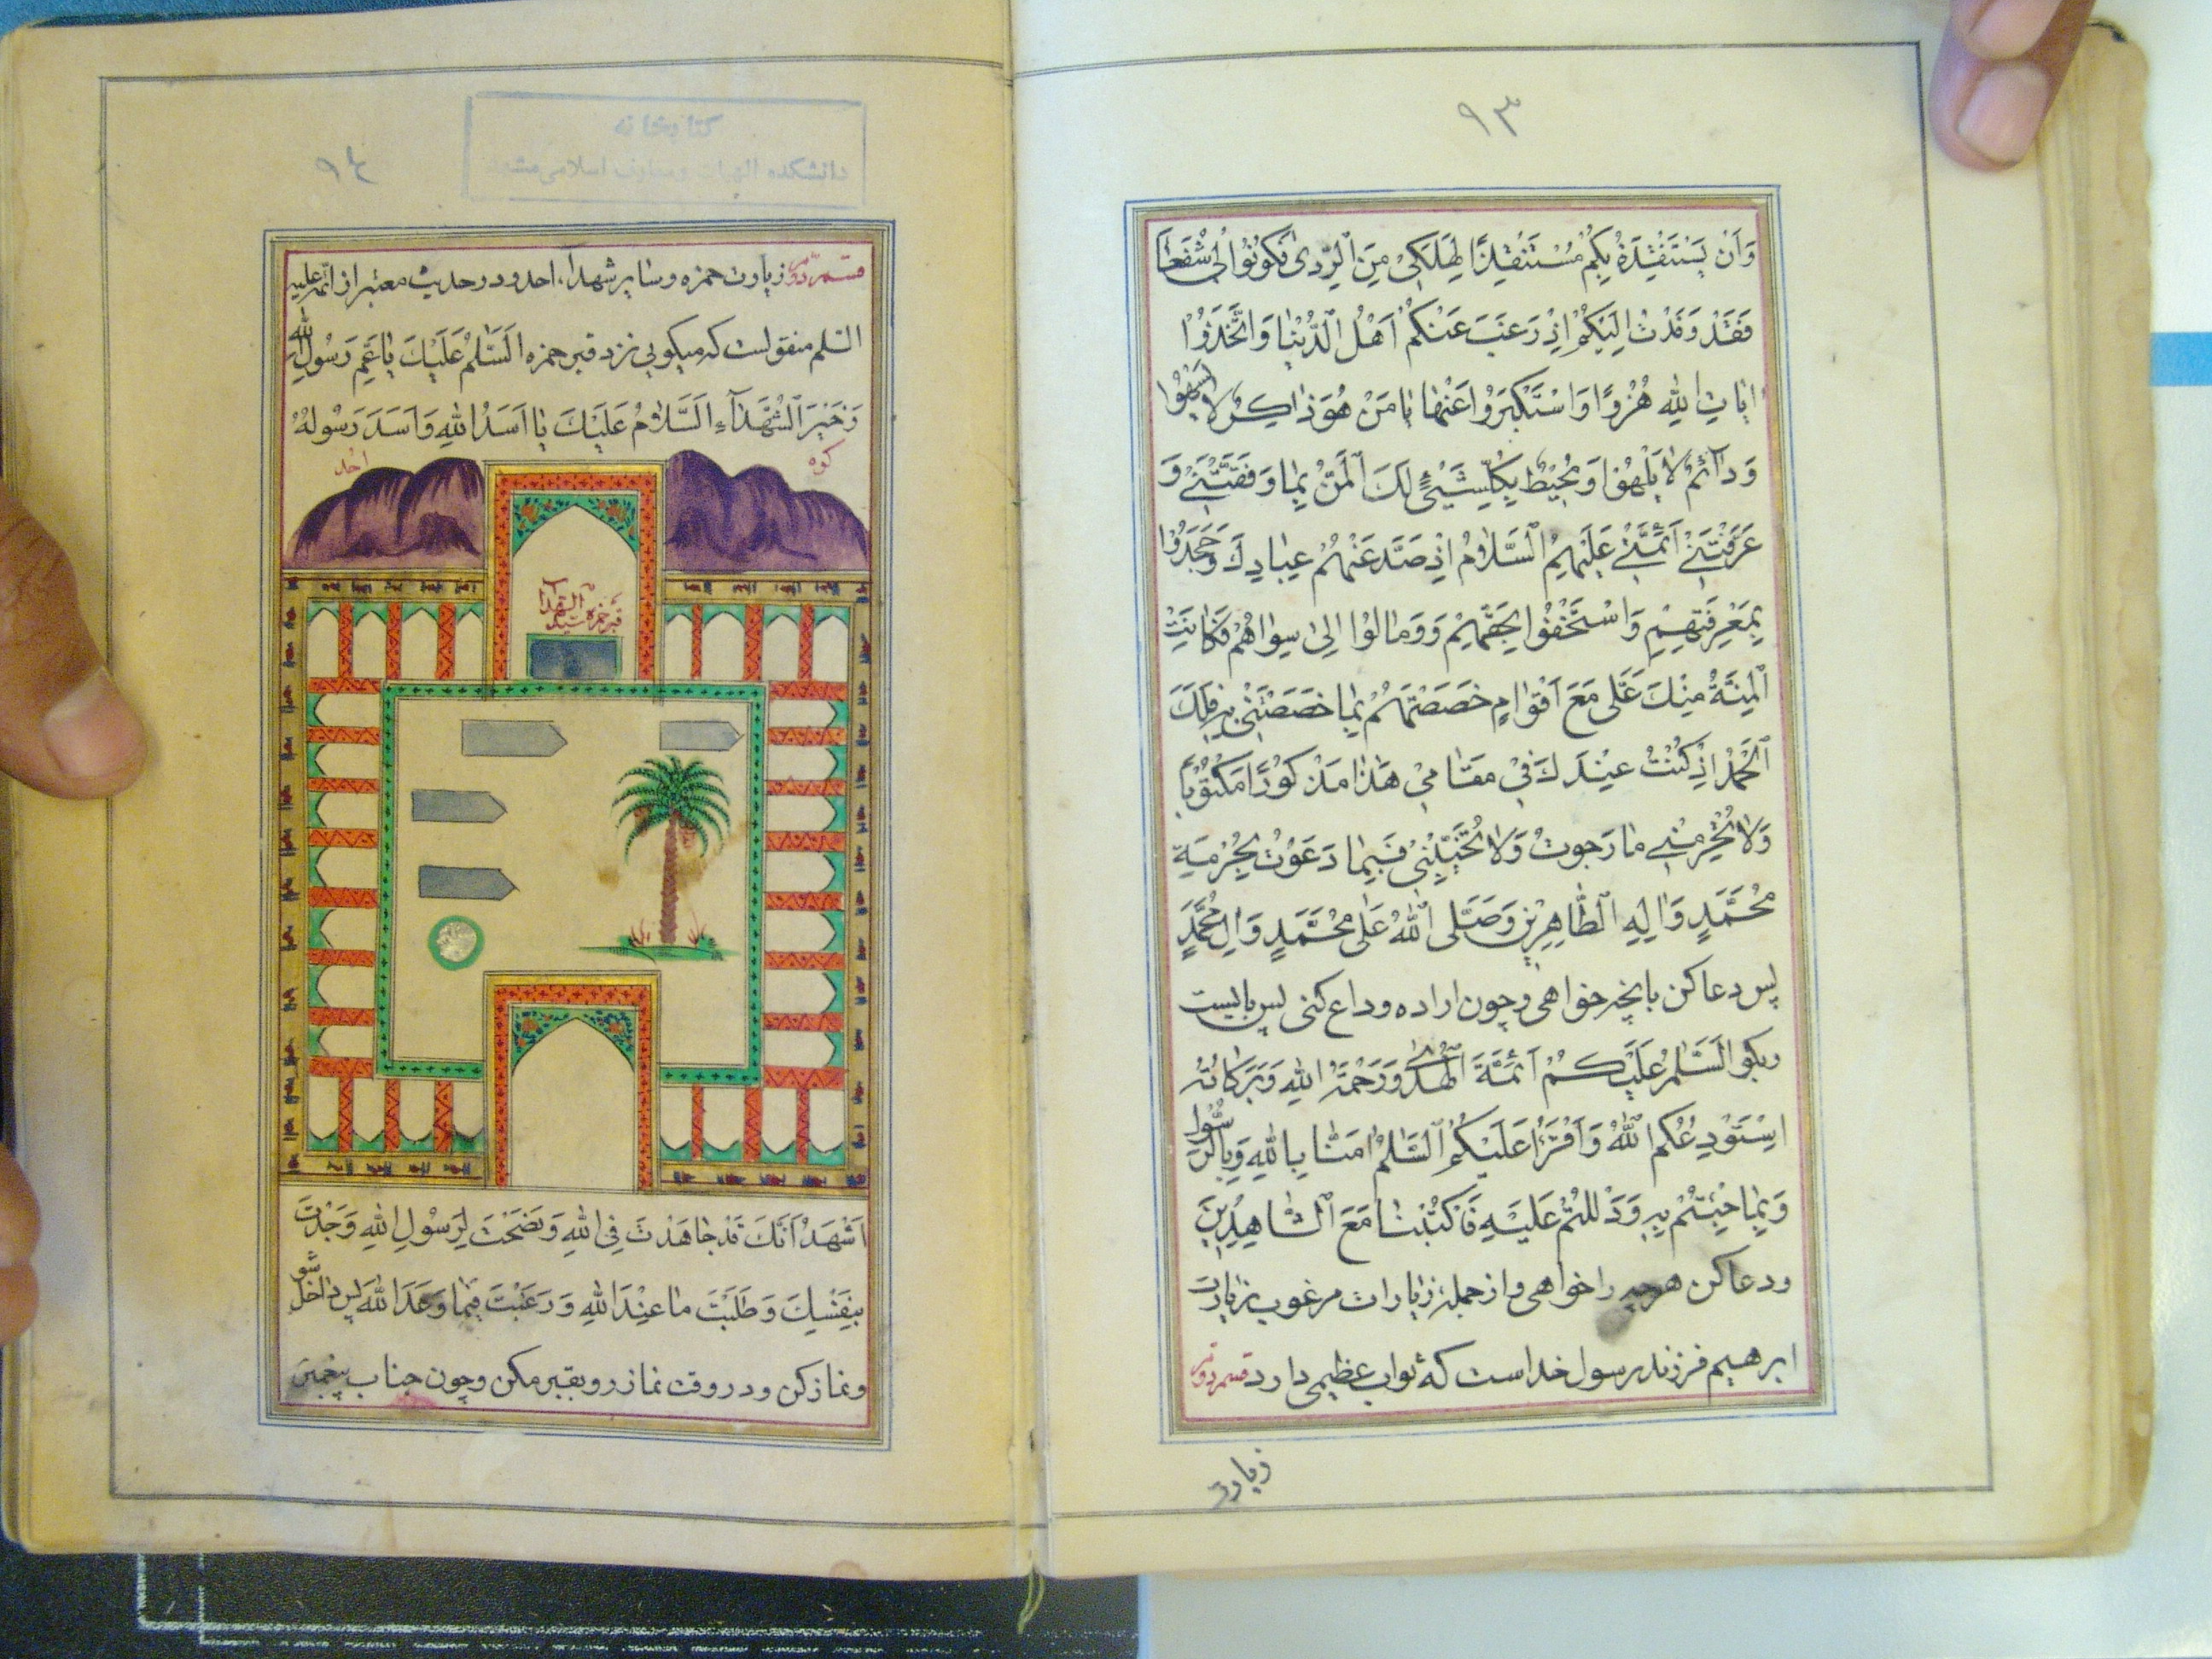 ٩٣
وَاَنْ يَسْتَنْقِذَهُ بِكُمْ مُسْتَنْقِذُ الْهَلَكٰى مِنَ الرَّدىٰ فَكُونُوا لى شُفَعٰآءَ
فَقَدْ وَفَدْتُ اِلَيْكُمْ اِذْ رَغِبَ عَنْكُمْ اَهْلُ الدُّنْيٰا وَاتَّخَذُوا
اٰيٰاتِ اللهِ هُزُوًا وَاسْتَكْبَرُوا عَنْهٰا يٰا مَنْ هُوَ ذٰاكِرٌ لٰا يَسْهُوا
وَدٰآئِمٌ لٰا يَلْهُوا وَمُحيطٌ بِكُلِّ شَيْئٍ لَكَ الْمَنُّ بِمٰا وَفَّقْتَنى وَ
عَرَّفْتَنى اَئِمَّتى عَلَيْهِمُ السَّلٰامُ اِذْ صَدَّ عَنْهُمْ عِبٰادِكَ وَجَحَدُوا
بِمَعْرِفَتِهِمْ وَاسْتَخَفُّوا بِحَقِّهِمْ وَ وَمٰالُوا اِلىٰ سِوٰاهُمْ فَكٰانَتِ
الْمِنَّةُ مِنْكَ عَلَى مَعَ اَقْوٰامٍ خَصَصْتَهُمْ بِمٰا خَصَصْتَنى بِهِ فَلَكَ
الْحَمْدُ اِذْ كُنْتُ عِنْدَكَ فى مَقٰامى هٰذٰا مَذْكُورًا مَكْتُوبًا
وَلٰا تَحْرِمْنى مٰا رَجَوتُ وَلٰا تُخَيِّبْنى فيمٰا دَعَوْتُ بِحُرْمَةِ
مُحَمَّدٍ وَاٰلِهِ الطّٰاهِرينَ وَصَلَّى اللهُ عَلىٰ مُحَمَّدٍ وَاٰلِ مُحَمَّدٍ
پس دعا كن بانچه خواهى و چون اراده وداع كنى پس بايست
و بگو السَّلٰامُ عَلَيْكُمْ اَئِمَّةَ الْهُدىٰ وَرَحْمَةُ اللهِ وَبَرَكٰاتُهُ
اَسْتَوْدِعُكُمُ اللهُ وَاَقْرَءُ عَلَيْكُمُ السَّلٰمُ اٰمَنّٰا بِاللهِ وَبِالرَّسُولِ
وَبِمٰا جِئْتُمْ بِهِ وَدَلَلْتُمْ عَلَيْهِ فَاكْتُبْنٰا مَعَ الشّٰاهِدينَ
ودعا كن هرچه را خواهى و از جمله زيارات مرغوب زيارت
ابرهيم فرزند رسول خداست كه ثواب عظيمى دارد قسم دوم
زيارت
كتابخانه
دانشكده الهيات و معارف اسلامى مشهد
٩٤
قسم دوم زيارت حمزه و ساير شهداء احد و در حديث معتبر از ائمه عليه
السلم منقولست كه ميگوبى نزد قبر حمزه اَلسَّلٰمُ عَلَيْكَ يٰا عَمِّ رَسُولِ اللهِ
وَخَيْرَ الشُّهَدٰآءِ اَلسَّلٰامُ عَلَيْكَ يٰا اَسَدُ اللهِ وَاَسَدَ رَسُولِهِ
كوه احد
قبر حمزه سيد الشهدا
اَشْهَدُ اَنَّكَ قَدْ جٰاهَدْتَ فِى اللهِ وَنَصَحْتَ لِرَسُولِ اللهِ وَجُدْتَ
بِنَفْسِكَ وَطَلَبْتَ مٰا عِنْدَ اللهِ وَرَغِبْتَ فيمٰا وَعَدَ اللهُ پس داخل شو
و نماز كن و در وقت نماز رو بقبر مكن و چون جناب پيغمبر